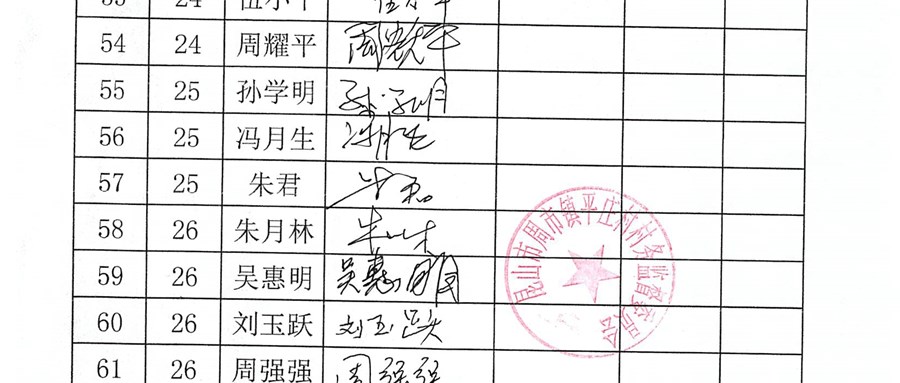 24
54 24 周耀平 周耀平
55 25 孙学明 孙学明
56 25 冯月生 冯月生
57 25 朱君 朱君
58 26 朱月林 朱月林
59 26 吴惠明 吴惠明
60 26 刘玉跃 刘玉跃
61 26 周强强 周强强
昆山市周市镇平庄村村务监督委员会